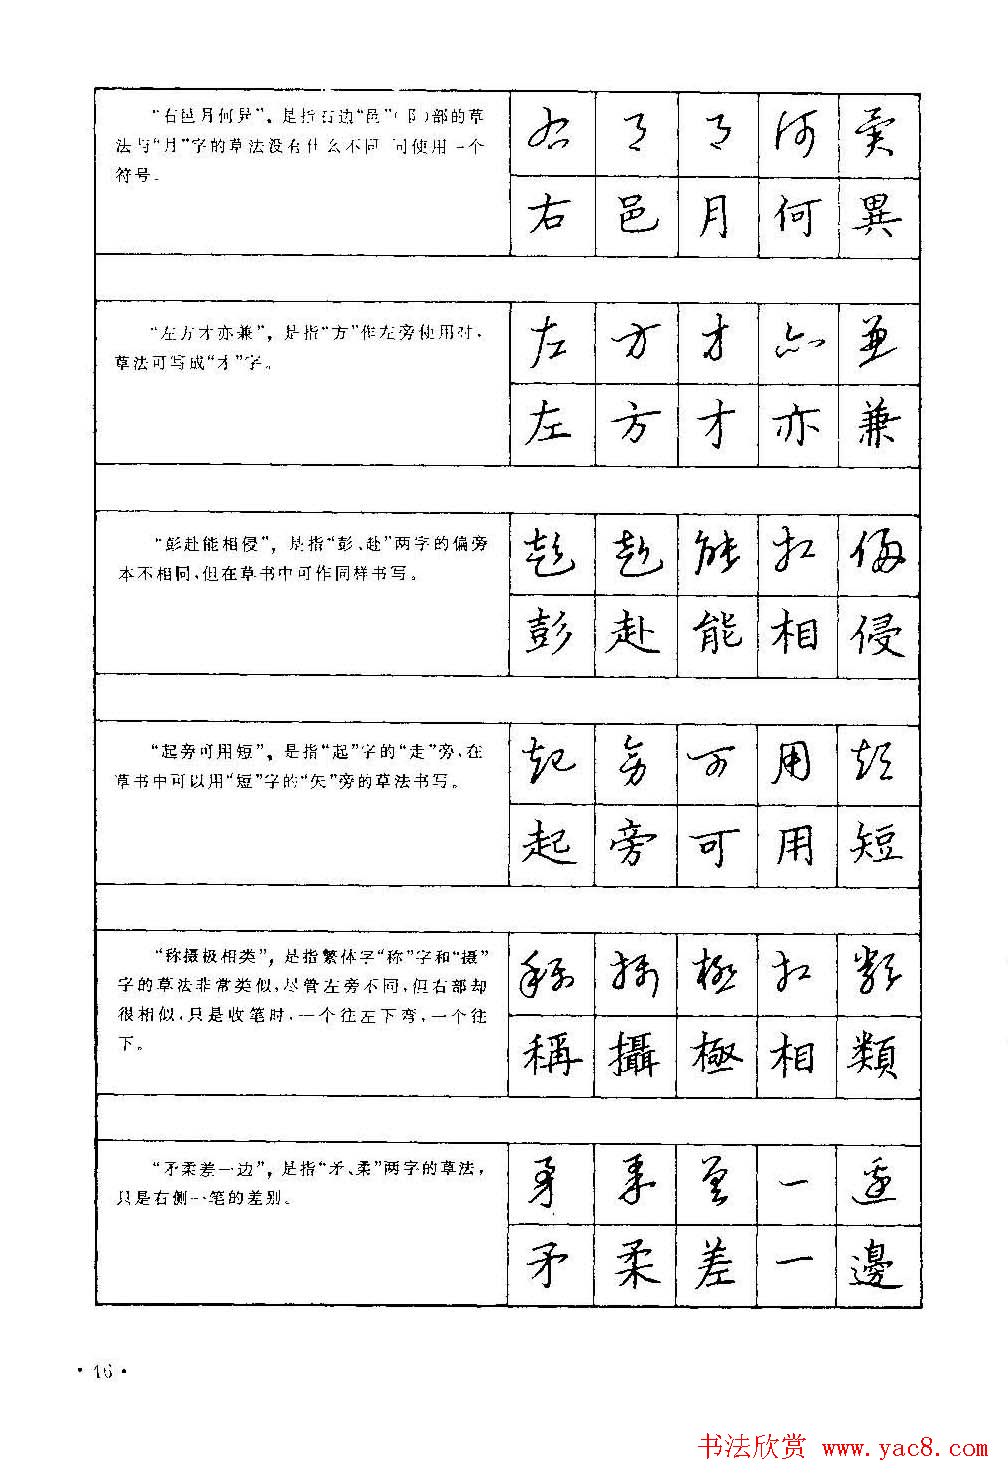 “右邑月何异”，是指右边“邑”（阝）部的草
右 邑 月 何 異
法与“月”字的草法没有什么不同，同使用一个
符号。
右 邑 月 何 異
“左方才亦兼”，是指“方”作左旁使用时，
左 方 才 亦 兼
草法可写成“才”字。
左 方 才 亦 兼
“彭赴能相侵”，是指“彭、赴”两字的偏旁
彭 赴 能 相 侵
本不相同，但在草书中可作同样书写。
彭 赴 能 相 侵
“起旁可用短”，是指“起”字的“走”旁，在
起 旁 可 用 短
草书中可以用“短”字的“矢”旁的草法书写。
起 旁 可 用 短
“称摄极相类”，是指繁体字“称”字和“摄”
稱 攝 極 相 類
字的草法非常类似，尽管左旁不同，但右部却
很相似，只是收笔时，一个往左下弯，一个往
下。
稱 攝 極 相 類
“矛柔差一边”，是指“矛、柔”两字的草法，
矛 柔 差 一 邊
只是右侧一笔的差别。
矛 柔 差 一 邊
·16·
书法欣赏 www.yac8.com